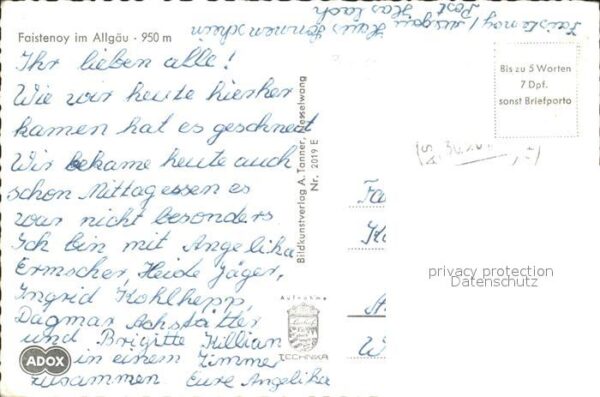 Faistenoy im Allgäu · 950 m
Faistenoy / Allgäu
Haus Sonnenschein
Post Haslach
Ihr lieben alle!
Wie wir heute hierher
kamen hat es geschneit
Wir bekame heute auch
schon Mittagessen es
war nicht besonders.
Ich bin mit Angelika
Ermscher, Heide Jäger,
Ingrid Kohlhepp,
Dagmar Achstätter
und Brigitte Killian
in einem Zimmer
zusammen Eure Angelika
ADOX
Bildkunstverlag A. Tanner, Nesselwang
Nr. 2019 E
Aufnahme
TECHNIKA
Bis zu 5 Worten
7 Dpf.
sonst Briefporto
Fa
privacy protection
Datenschutz